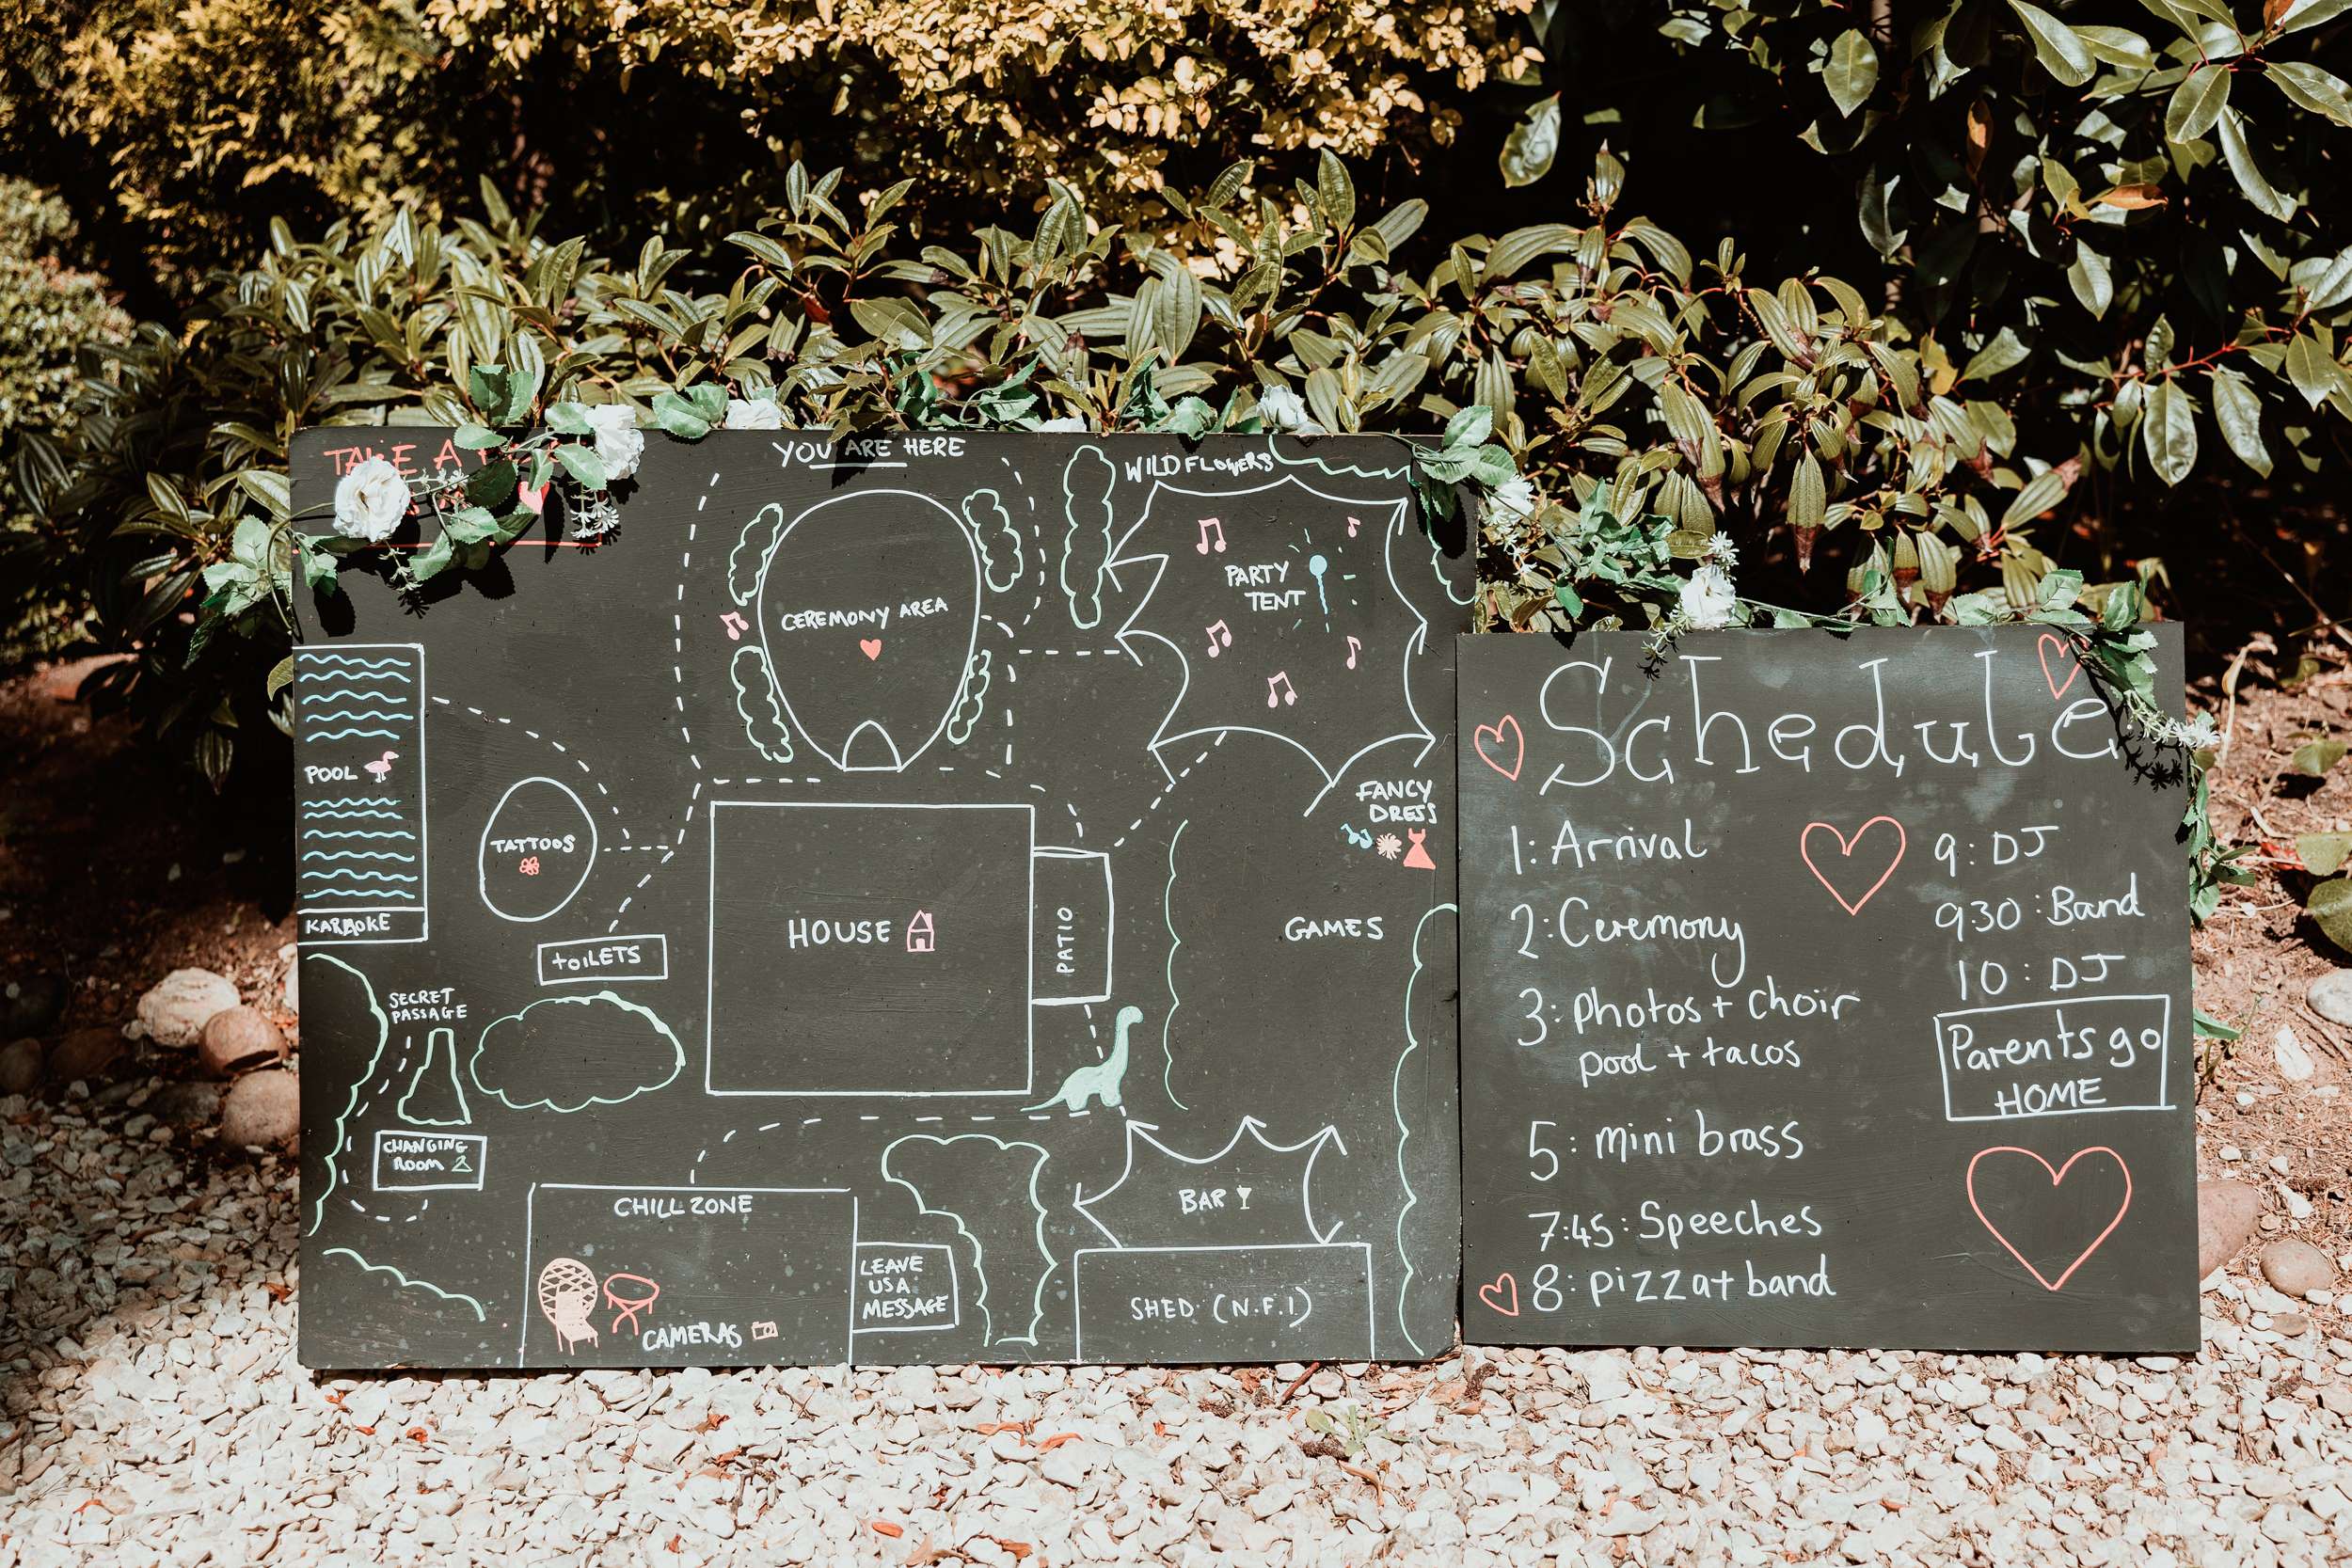 TAKE A
YOU ARE HERE
WILDFLOWERS
PARTY
TENT
CEREMONY AREA
POOL
KARAOKE
TATTOOS
TOILETS
HOUSE
PATIO
FANCY
DRESS
GAMES
SECRET
PASSAGE
CHANGING
ROOM
CHILL ZONE
CAMERAS
LEAVE
US A
MESSAGE
BAR
SHED (N.F.I)
Schedule
1: Arrival
2: Ceremony
3: Photos + choir
pool + tacos
5: mini brass
7:45: Speeches
8: pizza + band
9: DJ
930: Band
10: DJ
Parents go
HOME